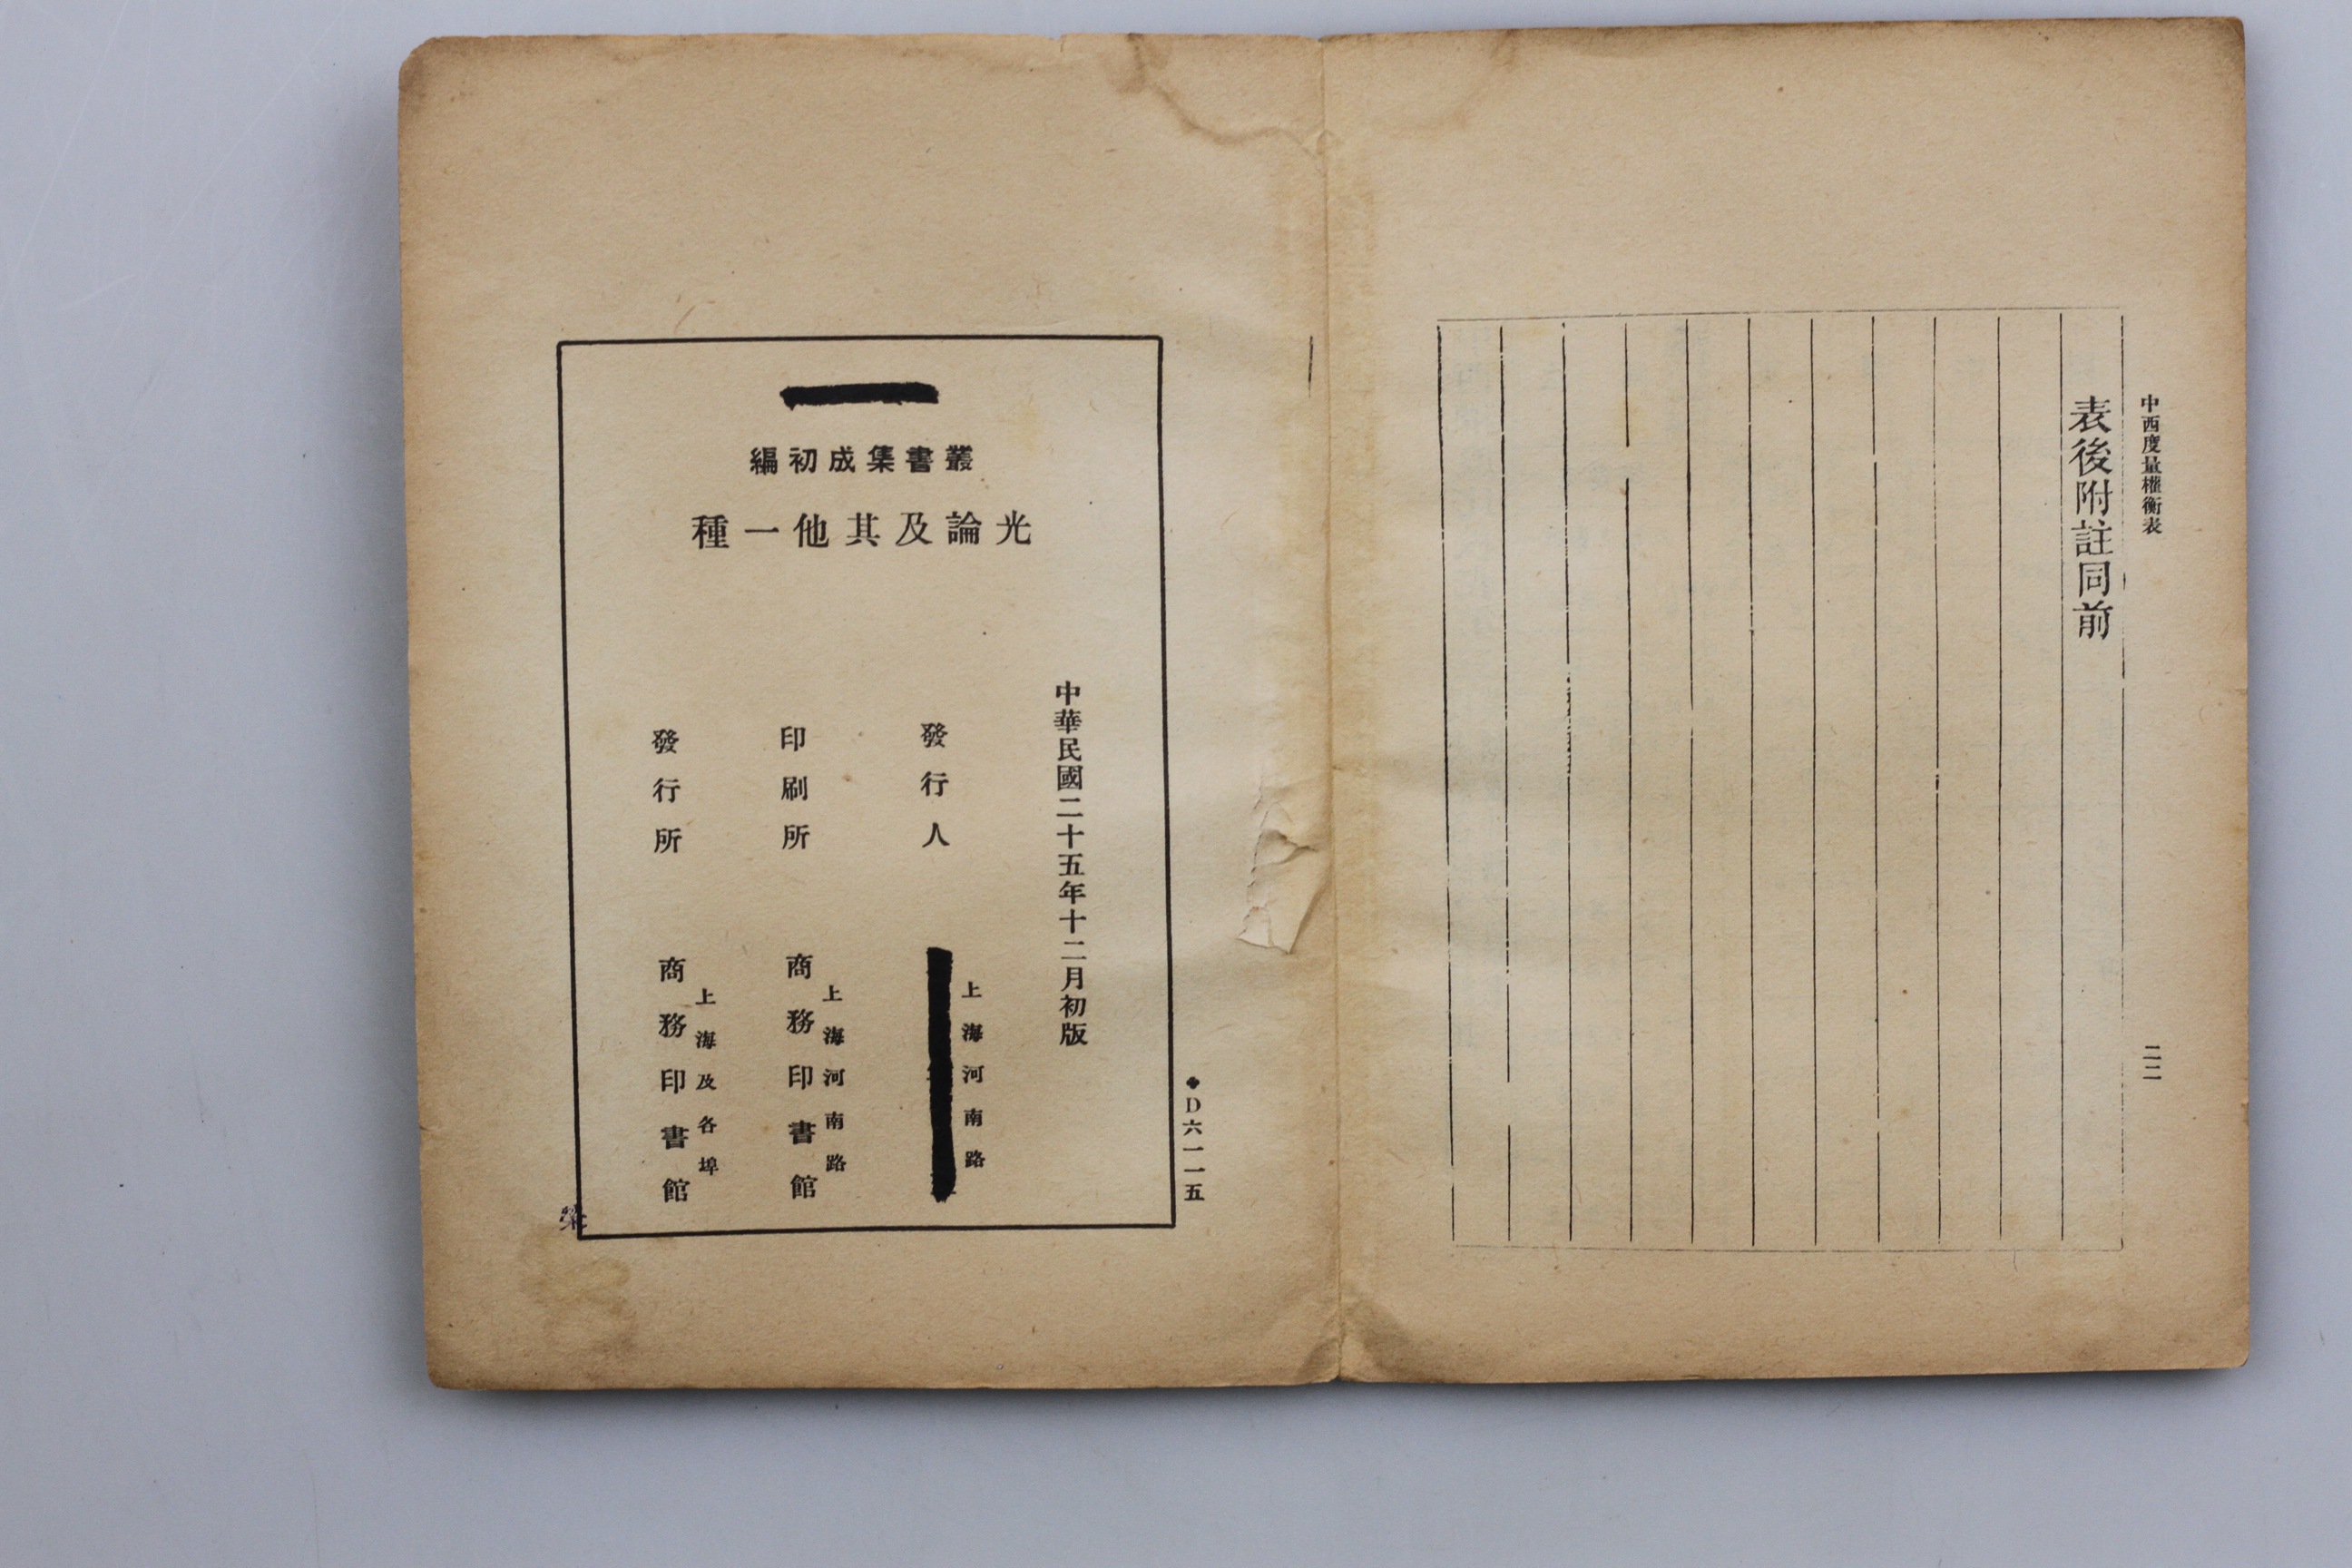 中西度量權衡表
二二
表後附註同前
叢書集成初編
光論及其他一種
中華民國二十五年十二月初版
發行人
上海河南路
印刷所
上海河南路
商務印書館
發行所
上海及各埠
商務印書館
◆D六一一五